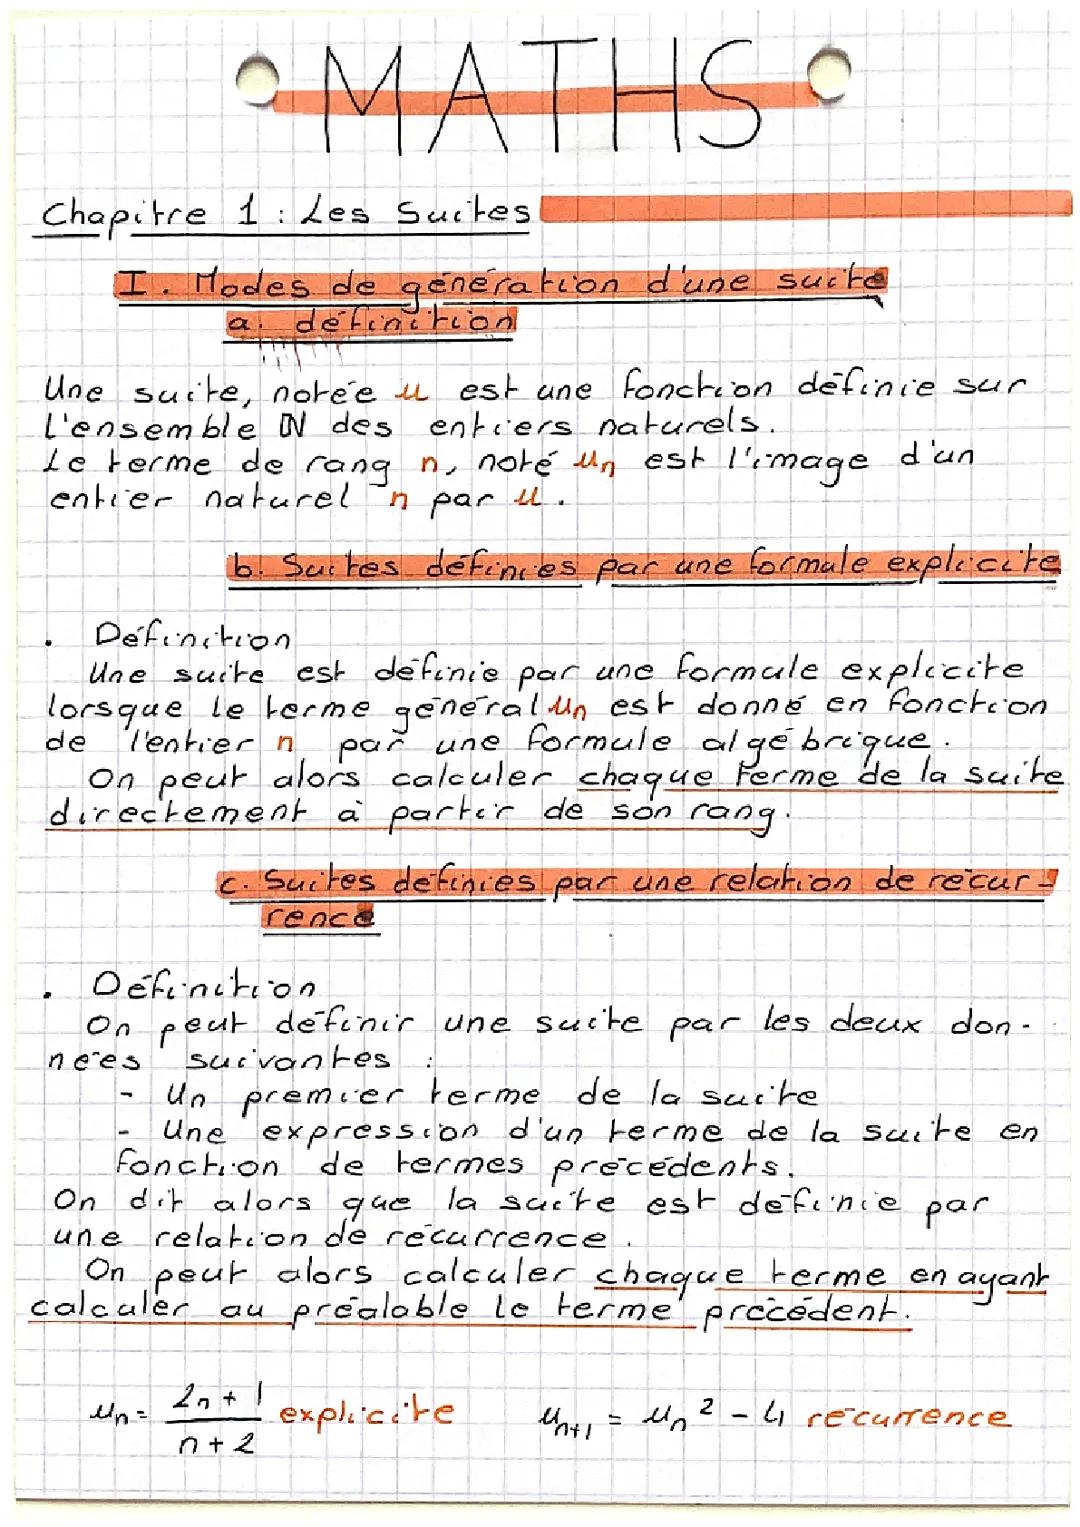 MATHS
Chapitre 1 : Les Suites
I. Modes de génération d'une suite
a. définition
Une suite, notée u est une fonction définie sur
l'ensemble ℕ des entiers naturels.
Le terme de rang n, noté un est l'image d'un
entier naturel n par u.
b. Suites définies par une formule explicite
. Définition
Une suite est définie par une formule explicite
lorsque le terme général un est donné en fonction
de l'entier n par une formule algébrique.
On peut alors calculer chaque terme de la suite
directement à partir de son rang.
c. Suites définies par une relation de récur-
rence
. Définition
On peut définir une suite par les deux don-
nées suivantes :
- Un premier terme de la suite
- Une expression d'un terme de la suite en
fonction de termes précédents.
On dit alors que la suite est définie par
une relation de récurrence.
On peut alors calculer chaque terme en ayant
calculer au préalable le terme précédent.
un = (2n + 1)/(n + 2) explicite un+1 = un² - 4 récurrence